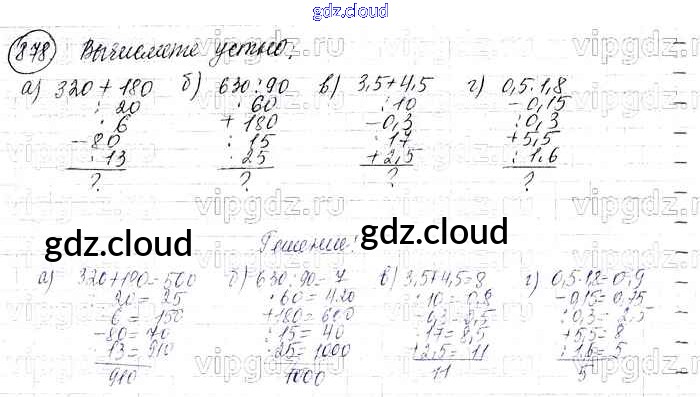 gdz.cloud
878 Вычислите устно:
а) 320 + 180 б) 630 : 90 в) 3,5 + 4,5 г) 0,5 · 1,8
: 20 · 60 : 10 − 0,15
· 6 + 180 − 0,3 : 0,3
− 80 : 15 · 17 + 5,5
· 13 · 25 + 2,5 : 1,6
? ? ? ?
gdz.cloud gdz.cloud
Решение:
а) 320 + 180 = 500 б) 630 : 90 = 7 в) 3,5 + 4,5 = 8 г) 0,5 · 1,8 = 0,9
: 20 = 25 · 60 = 420 : 10 = 0,8 − 0,15 = 0,75
· 6 = 150 + 180 = 600 − 0,3 = 0,5 : 0,3 = 2,5
− 80 = 70 : 15 = 40 · 17 = 8,5 + 5,5 = 8
· 13 = 910 · 25 = 1000 + 2,5 = 11 : 1,6 = 5
910 1000 11 5